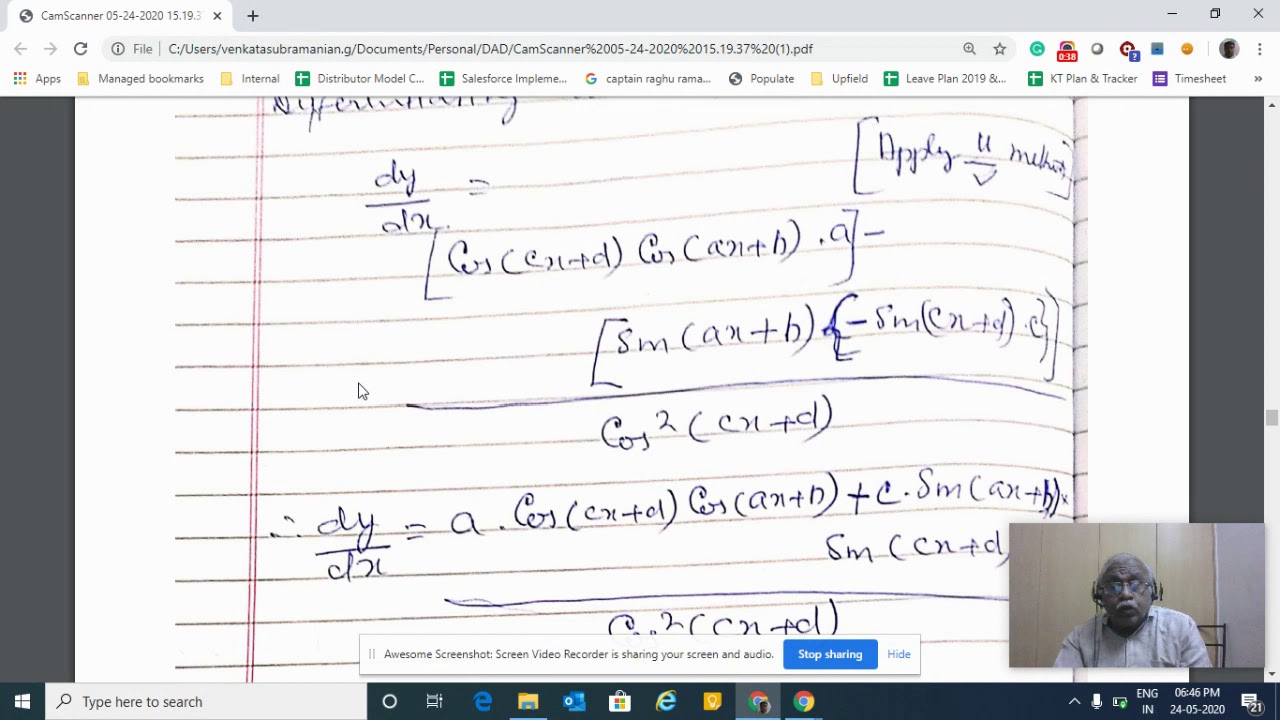 CamScanner 05-24-2020 15.19.3
File | C:/Users/venkatasubramanian.g/Documents/Personal/DAD/CamScanner%2005-24-2020%2015.19.37%20(1).pdf
0:38
?
Apps Managed bookmarks Internal Distributor Model C... Salesforce Impleme... captain raghu rama... Populate Upfield Leave Plan 2019 &... KT Plan & Tracker Timesheet »
Differentiating
[Apply u/v method]
dy/dx =
[Cos(cx+d) Cos(ax+b) . a] -
[Sin(ax+b) {-Sin(cx+d) . c}]
Cos²(cx+d)
∴ dy/dx = a . Cos(cx+d) Cos(ax+b) + c . Sin(ax+b) x
Sin(cx+d)
Cos²(cx+d)
Awesome Screenshot: Screen Video Recorder is sharing your screen and audio. Stop sharing Hide
Type here to search
ENG 06:46 PM
IN 24-05-2020
21